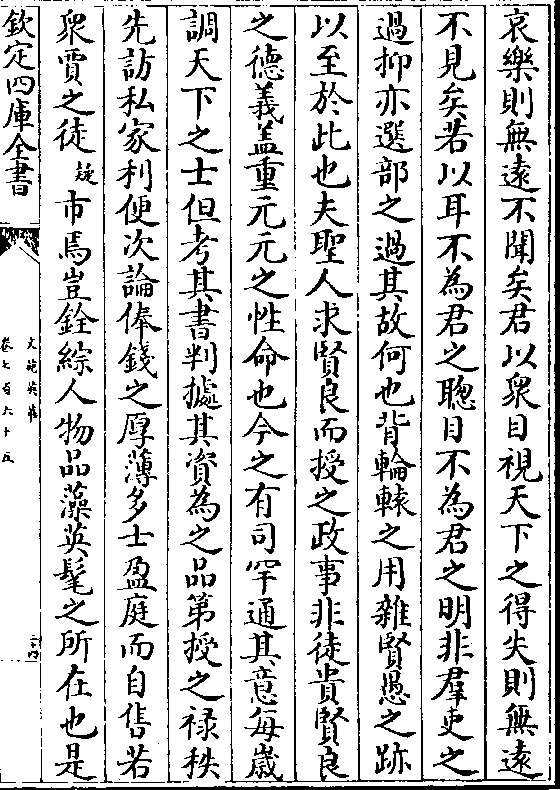 哀樂則無遠不聞矣君以衆目視天下之得失則無遠
不見矣若以耳不為君之聰目不為君之明非羣吏之
過抑亦選部之過其故何也背輪轅之用雜賢愚之跡
以至於此也夫聖人求賢良而授之政事非徒貴賢良
之德義盖重元元之性命也今之有司罕通其意每歳
調天下之士但考其書判㨿其資為之品第授之禄秩
先訪私家利便次論俸錢之厚薄多士盈庭而自售若
衆賈之徒疑市焉豈銓綜人物品藻英髦之所在也是
欽定四庫全書
文苑英華
卷七百六十五
二十四